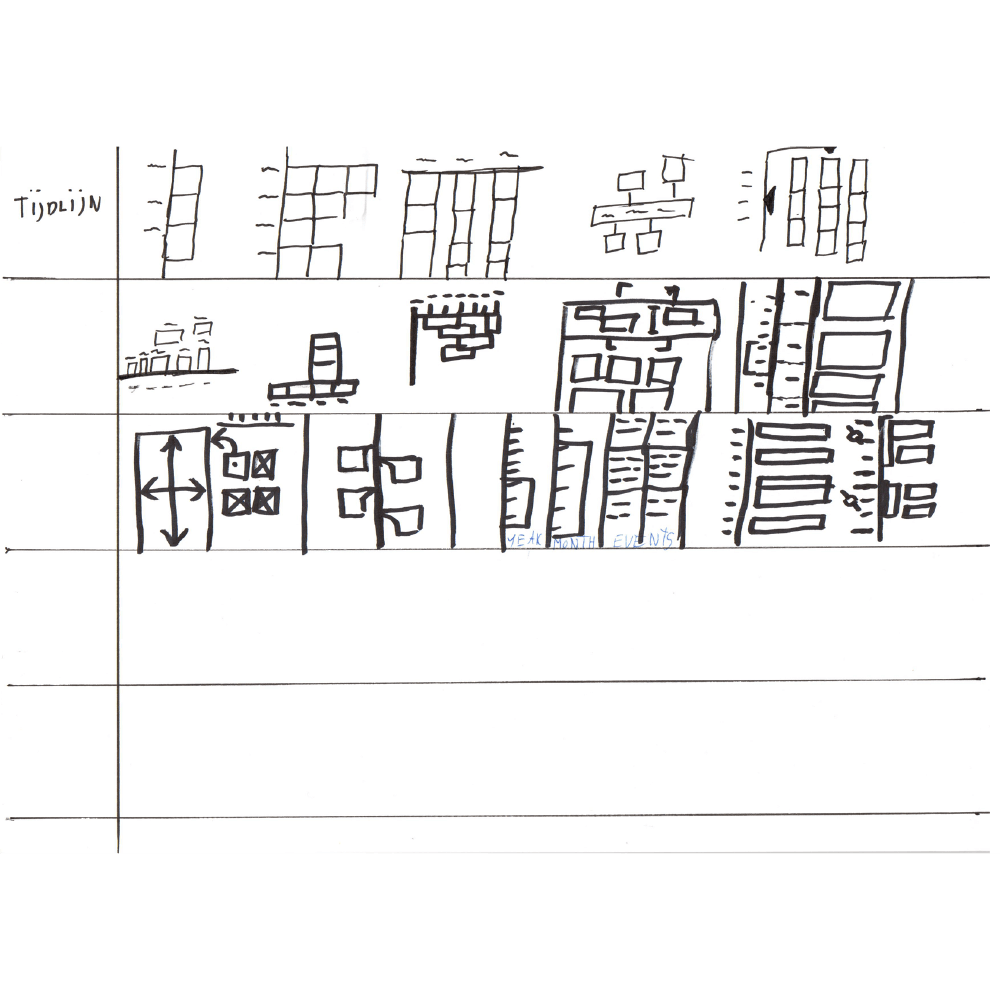 TijDLijN
YEAR MONTH EVENTS